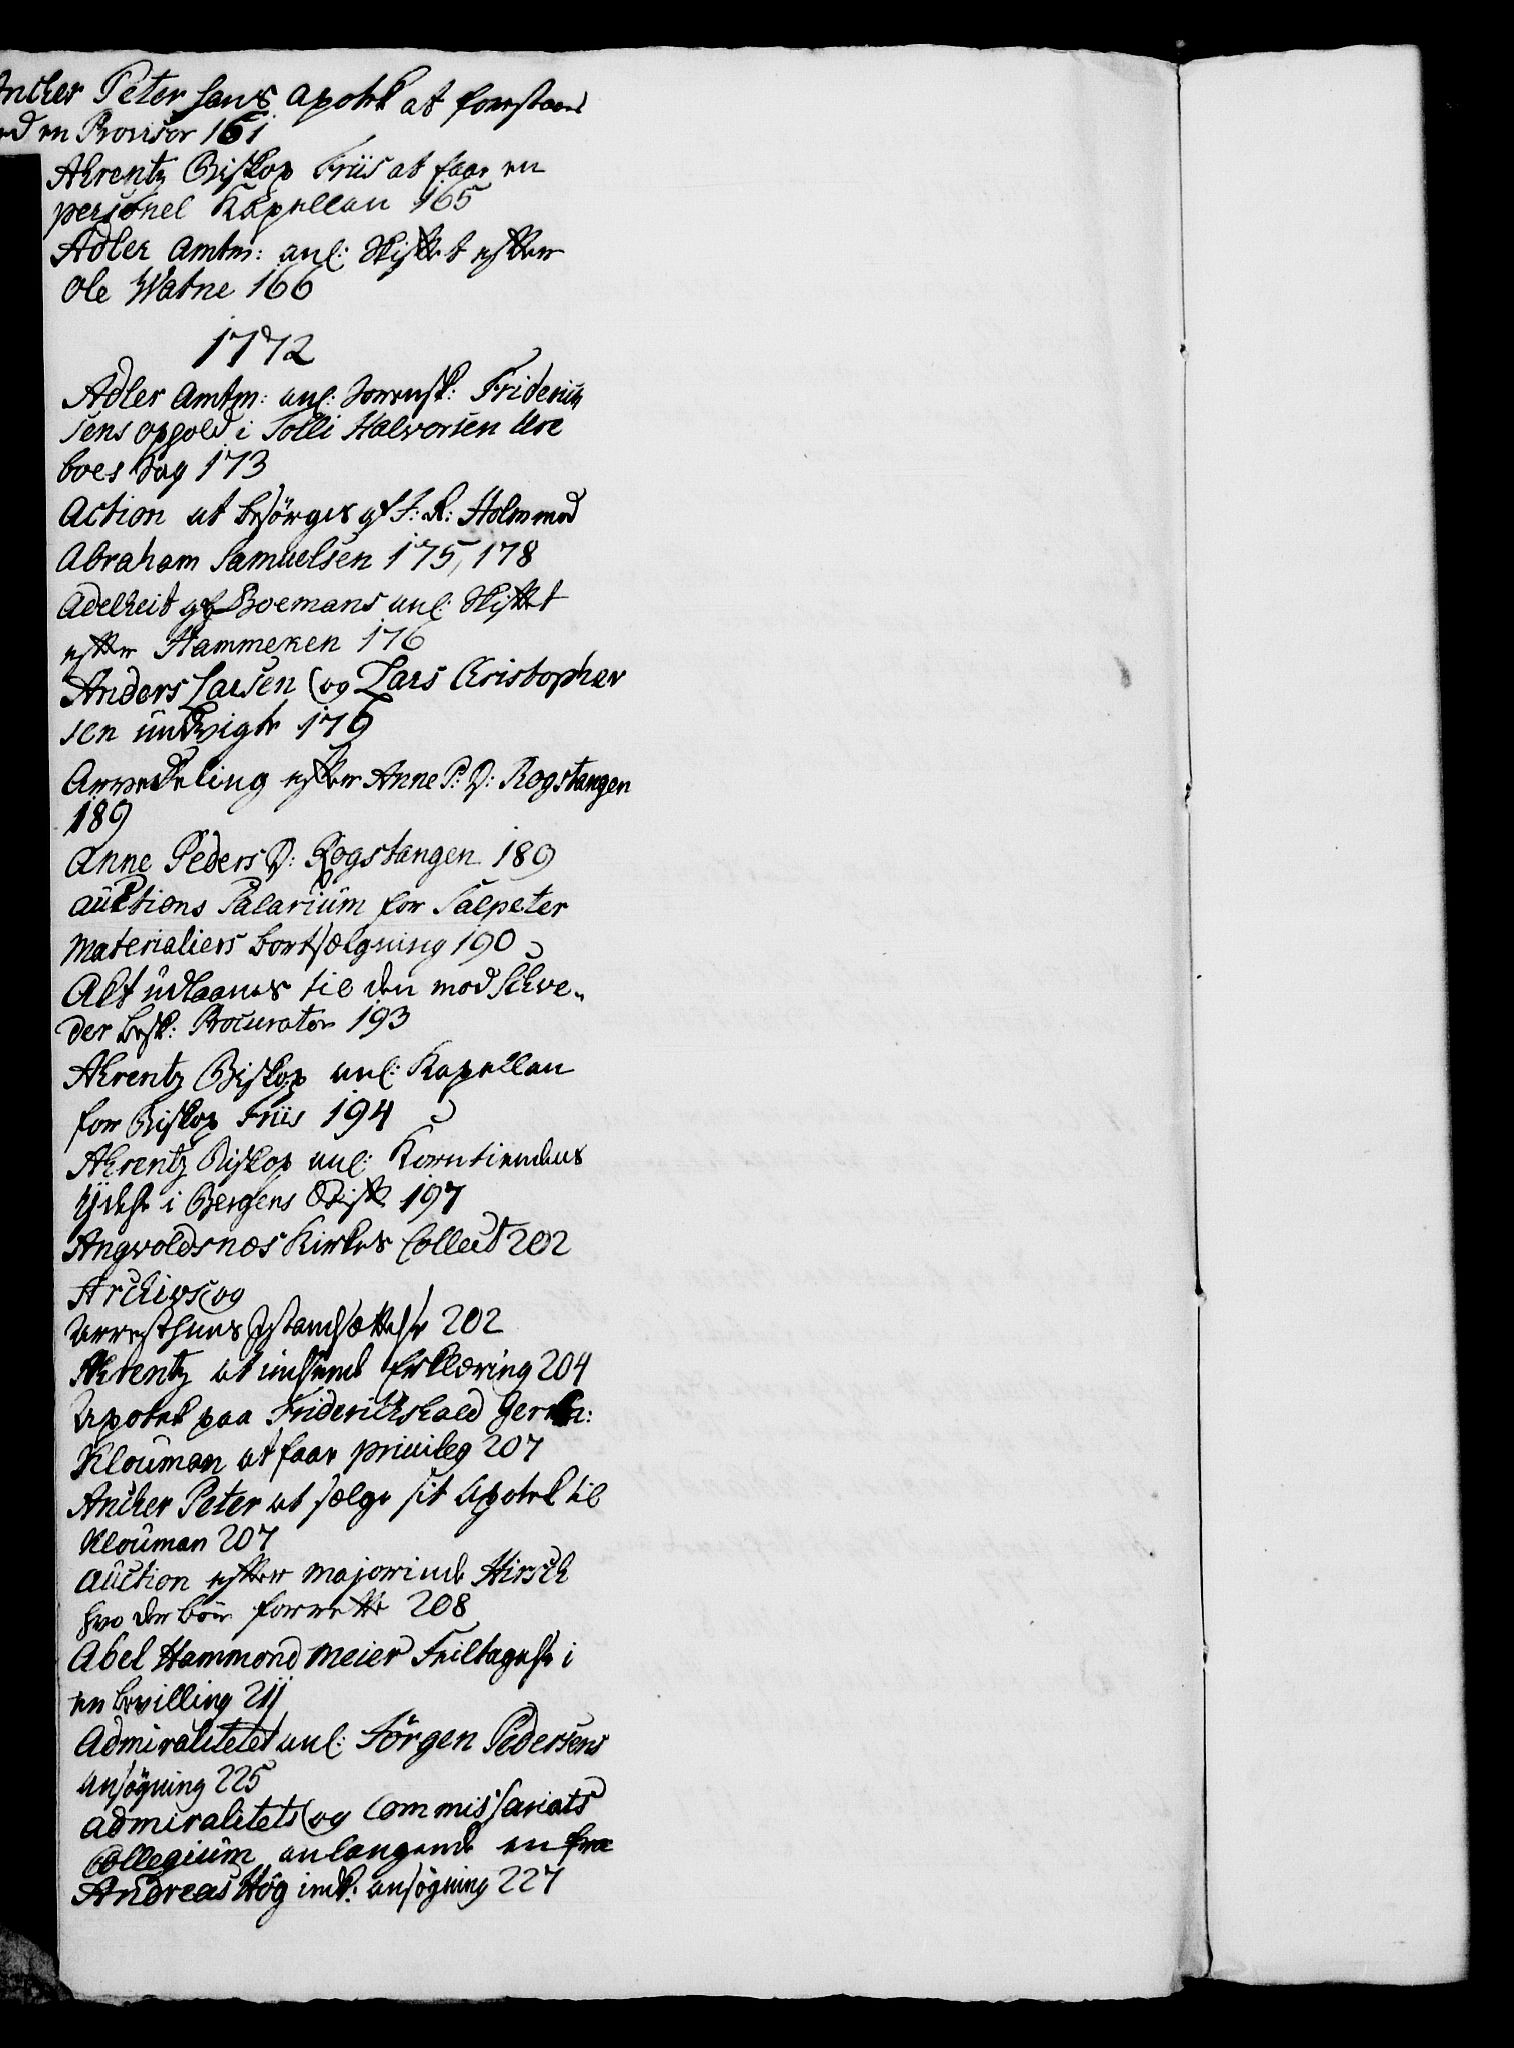 Ancher Peter hans Apotek at forestaaes
ved en Provisor 161
Ahrentz Biskop Friis at faae en
personel Kapellan 165
Adler Amtm: anl: Skiftet efter
Ole Watne 166
1772
Adler Amtm: anl: Sorensk: Friderich
sens ophold i Tolli Halvorsen Ure
boes Sag 173
Action at besörges af F: R: Holm mod
Abraham Samuelsen 175, 178
Adelheit Boemans anl: Skiftet
efter Hammeken 176
Anders Larsen og Lars Christopher
sen undvigte 179
Arvedeling efter Anne P: D: Rogstangen
189
Anne Peders D: Rogstangen 189
Auctions Salarium for Salpeter
Materialiers bortsælgning 190
Alt udlaanes til den mod Schrö
der besk: Procurator 193
Ahrentz Biskop anl: Kapellan
for Biskop Friis 194
Ahrentz Biskop anl: Korntiendens
Ydelse i Bergens Stift 197
Angvoldsnæs Kirkes Collect 202
Archivs og
Arresthuus Istandsættelse 202
Ahrentz at indsende Erklæring 204
Apotek paa Friderichshald Gerh:
Klouman at faae privileg 207
Ancher Peter at sælge sit Apotek til
Klouman 207
Auction efter Majorinde Hirsch
hvo der bör forrette 208
Abel Hammond Meier Feiltagelse i
en bevilling 211
Admiralitetet anl: Jörgen Pedersens
ansögning 225
Admiralitets og Commissariats
Collegium anlangende en fra
Andreas Høg indk: ansögning 227